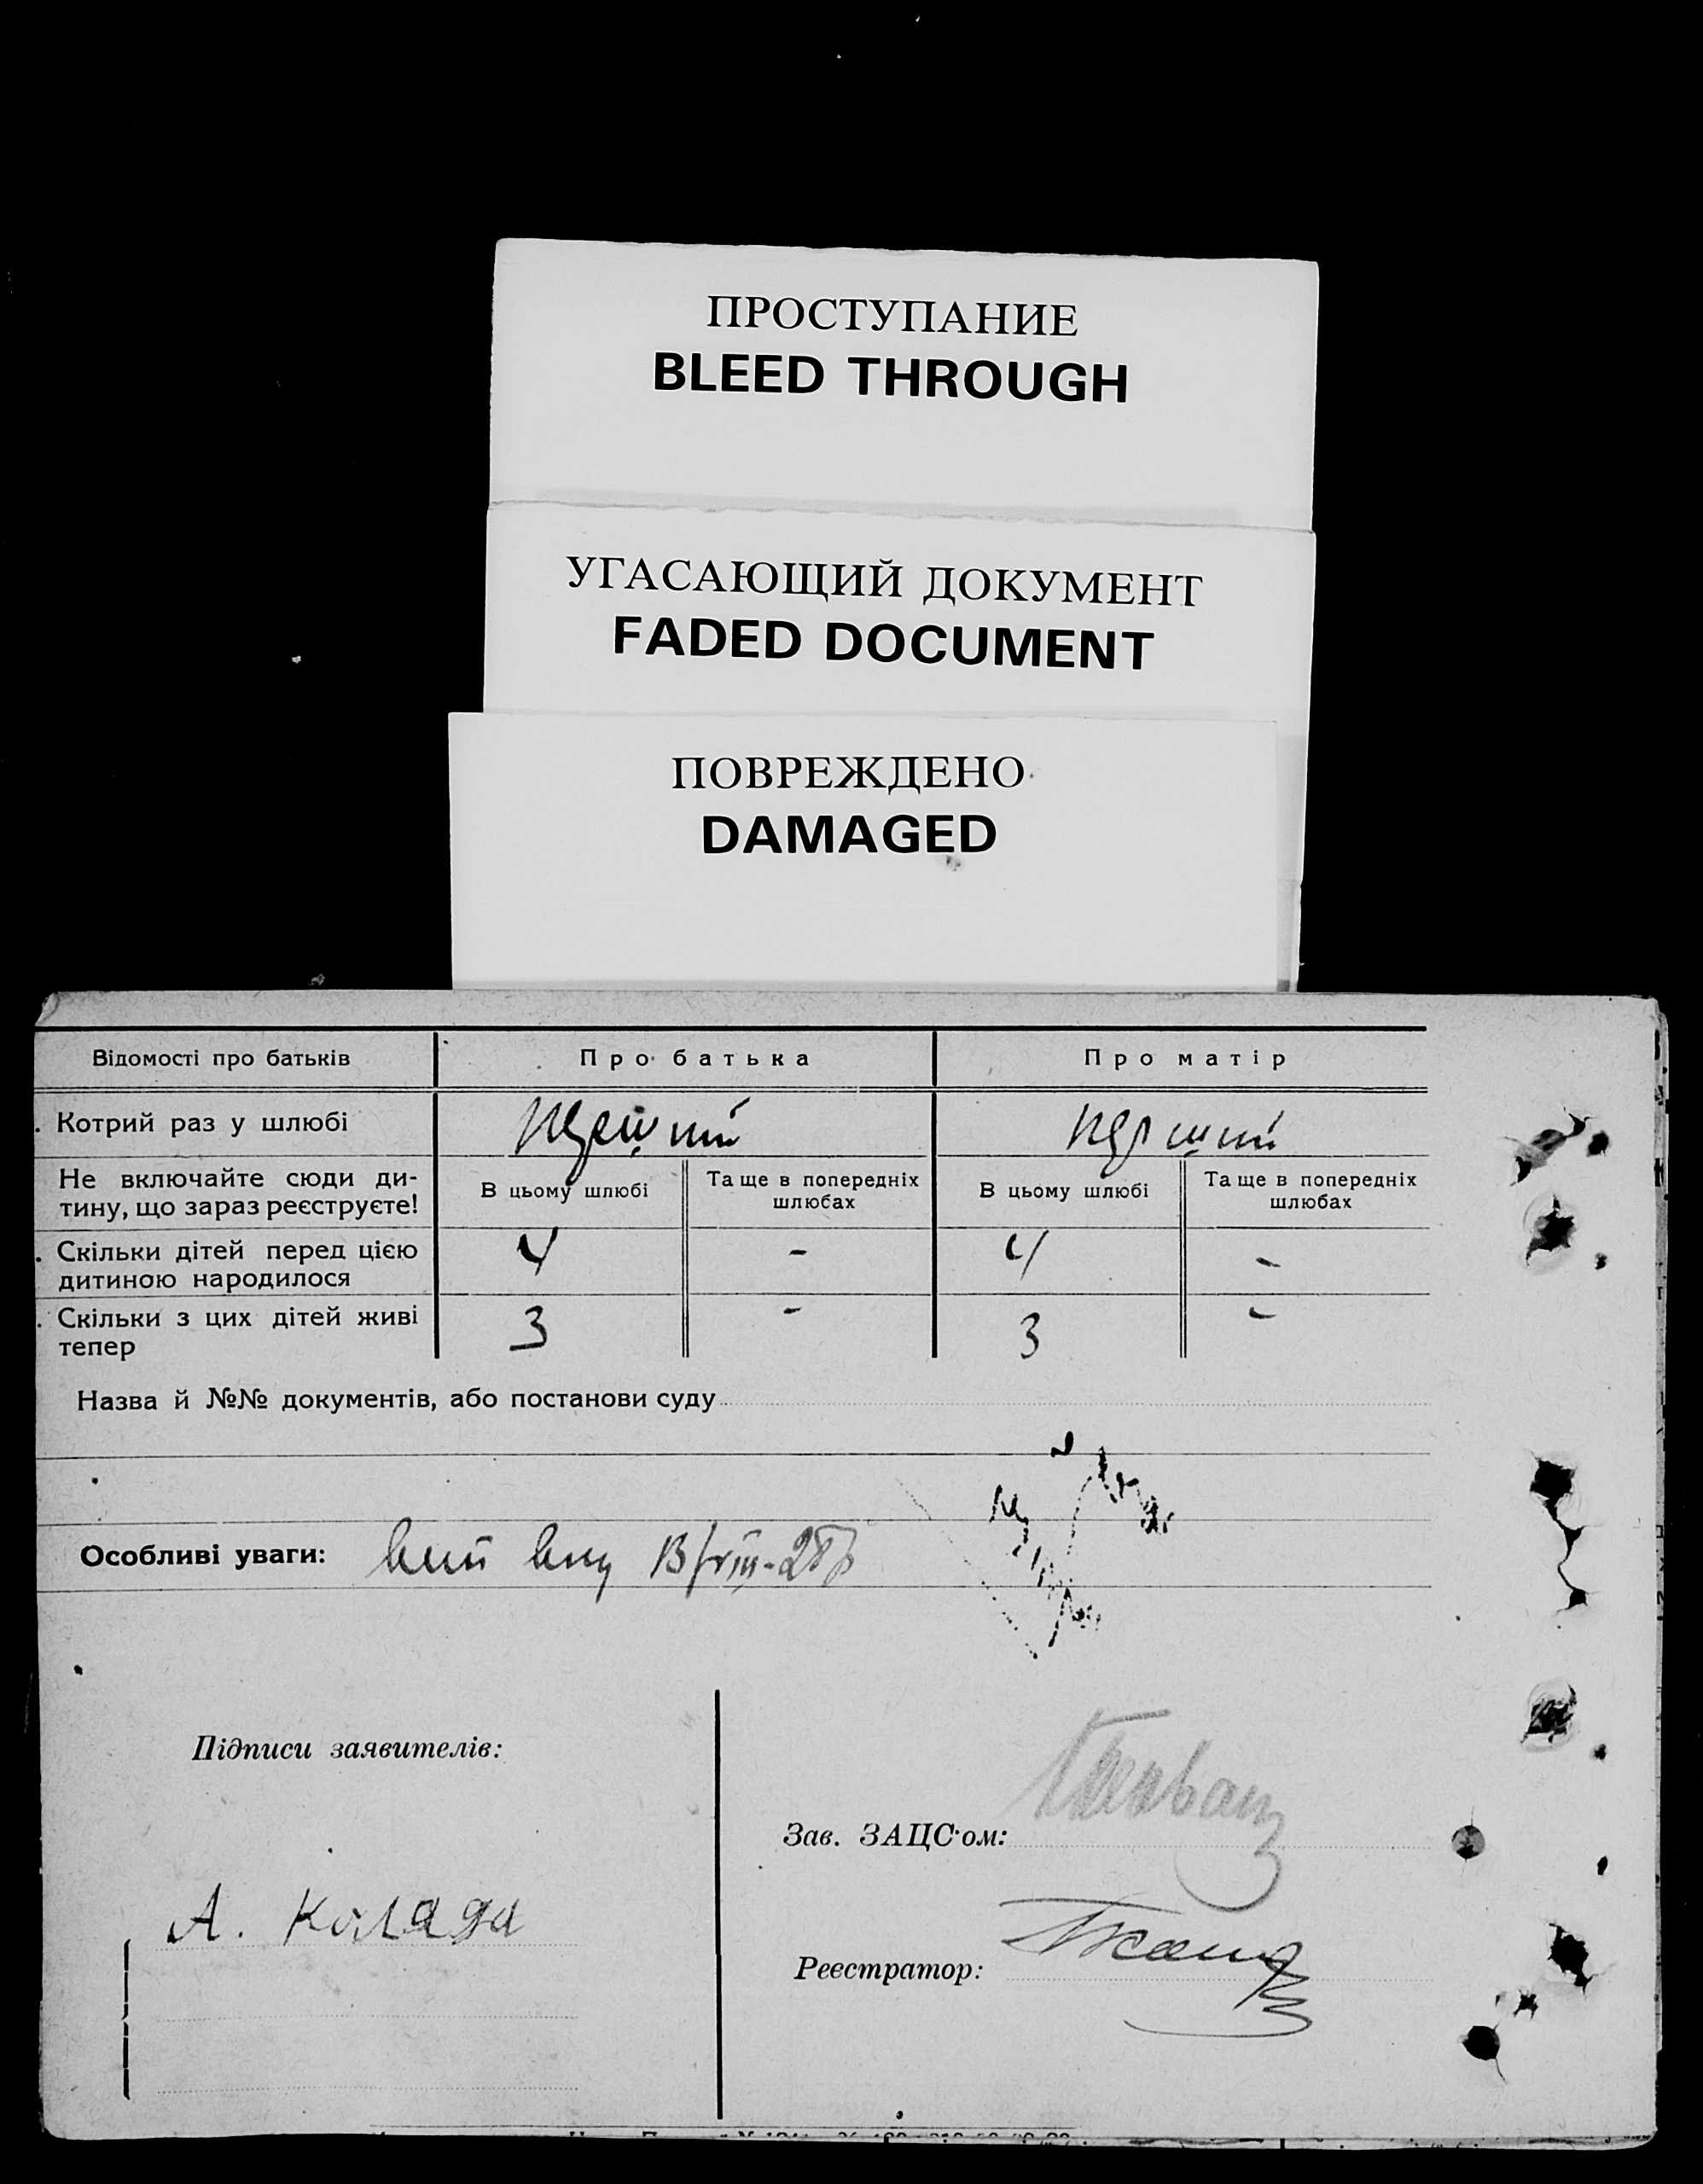 ПРОСТУПАНИЕ
BLEED THROUGH
УГАСАЮЩИЙ ДОКУМЕНТ
FADED DOCUMENT
ПОВРЕЖДЕНО
DAMAGED
Відомості про батьків Про батька Про матір
. Котрий раз у шлюбі перший перший
Не включайте сюди ди-
тину, що зараз реєструєте!
В цьому шлюбі
Та ще в попередніх
шлюбах
В цьому шлюбі
Та ще в попередніх
шлюбах
. Скільки дітей перед цією
дитиною народилося
4 - 4 -
. Скільки з цих дітей живі
тепер
3 - 3 -
Назва й №№ документів, або постанови суду
Особливі уваги:
Підписи заявителів:
Зав. ЗАЦС'ом:
А. Коляда
Реєстратор: